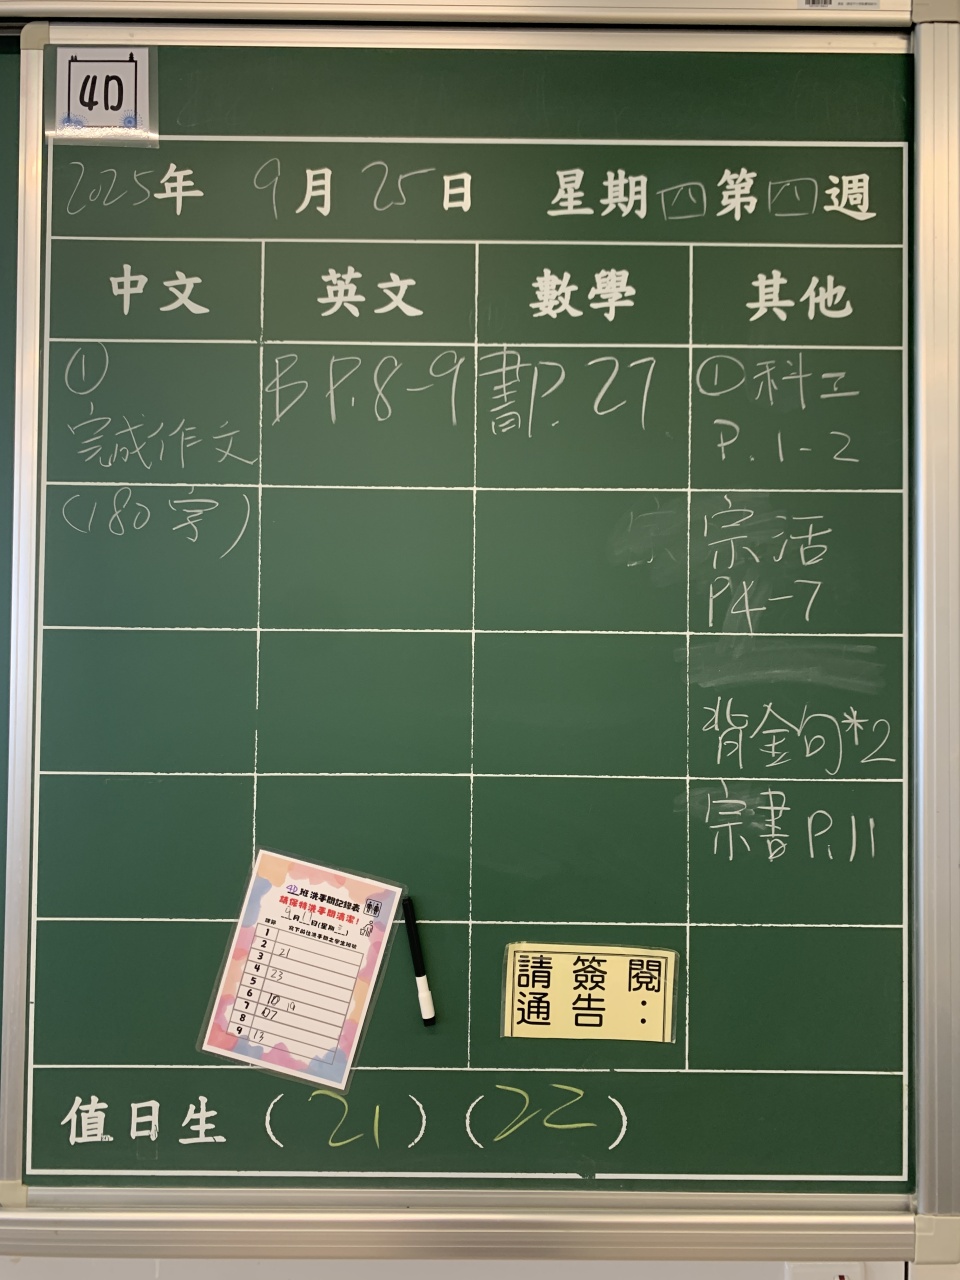 4D
2025年 9月25日 星期四第四週
中文 英文 數學 其他
①
完成作文
(180字)
B P.8-9
書P.27
①科工
P.1-2
宗活
P4-7
背金句*2
宗書P.11
4D班洗手間記錄表
請保持洗手間清潔！
9月11日(星期三)
課節 寫下前往洗手間之學生班號
1
2 21
3
4 23
5
6 10 19
7 07
8
9 13
請簽閱
通告：
值日生 (21) (22)